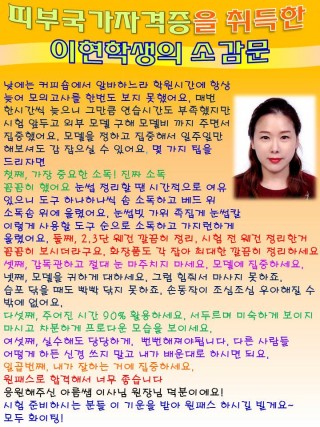 피부국가자격증을 취득한
이현학생의 소감문
낮에는 커피숍에서 알바하느라 학원시간에 항상
늦어 모의고사를 한번도 보지 못했어요. 매번
한시간씩 늦으니 그만큼 연습시간도 부족했지만
시험 앞두고 외부 모델 구해 모델비 까지 주면서
집중했어요. 모델을 정하고 집중해서 일주일만
해보셔도 감 잡으실 수 있어요. 몇 가지 팁을
드리자면
첫째, 가장 중요한 소독! 진짜 소독
꼼꼼히 했어요 눈썹 정리할 땐 시간적으로 여유
있으니 도구 하나하나씩 솜 소독하고 베드 위
소독솜 위에 올렸어요. 눈썹빗 가위 족집게 눈썹칼
이렇게 사용할 도구 순으로 소독하고 가지런하게
올렸어요, 둘째, 2,3단 웨건 깔끔히 정리, 시험 전 웨건 정리한거
꼼꼼히 보시더라구요. 화장품도 각 잡아 최대한 깔끔히 정리하세요
셋째, 감독관하고 절대 눈 마주치지 마세요. 모델에 집중하세요.
넷째, 모델을 귀하게 대하세요. 그럼 힘줘서 마사지 못하죠.
습포 닦을 때도 빡빡 닦지 못하죠. 손동작이 조심조심 우아해질 수
밖에 없어요,
다섯째, 주어진 시간 90% 활용하세요. 서두르며 미숙하게 보이지
마시고 차분하게 프로다운 모습을 보이세요.
여섯째, 실수해도 당당하게, 뻔뻔해져야됩니다. 다른 사람들
어떻게 하든 신경 쓰지 말고 내가 배운대로 하시면 되요.
일곱번째, 내가 잘하는 거에 집중하세요.
원패스로 합격해서 너무 좋습니다
응원해주신 아름쌤 이사님 원장님 덕분이에요!
시험 준비하시는 분들 이 기운을 받아 원패스 하시길 빌게요~
모두 화이팅!